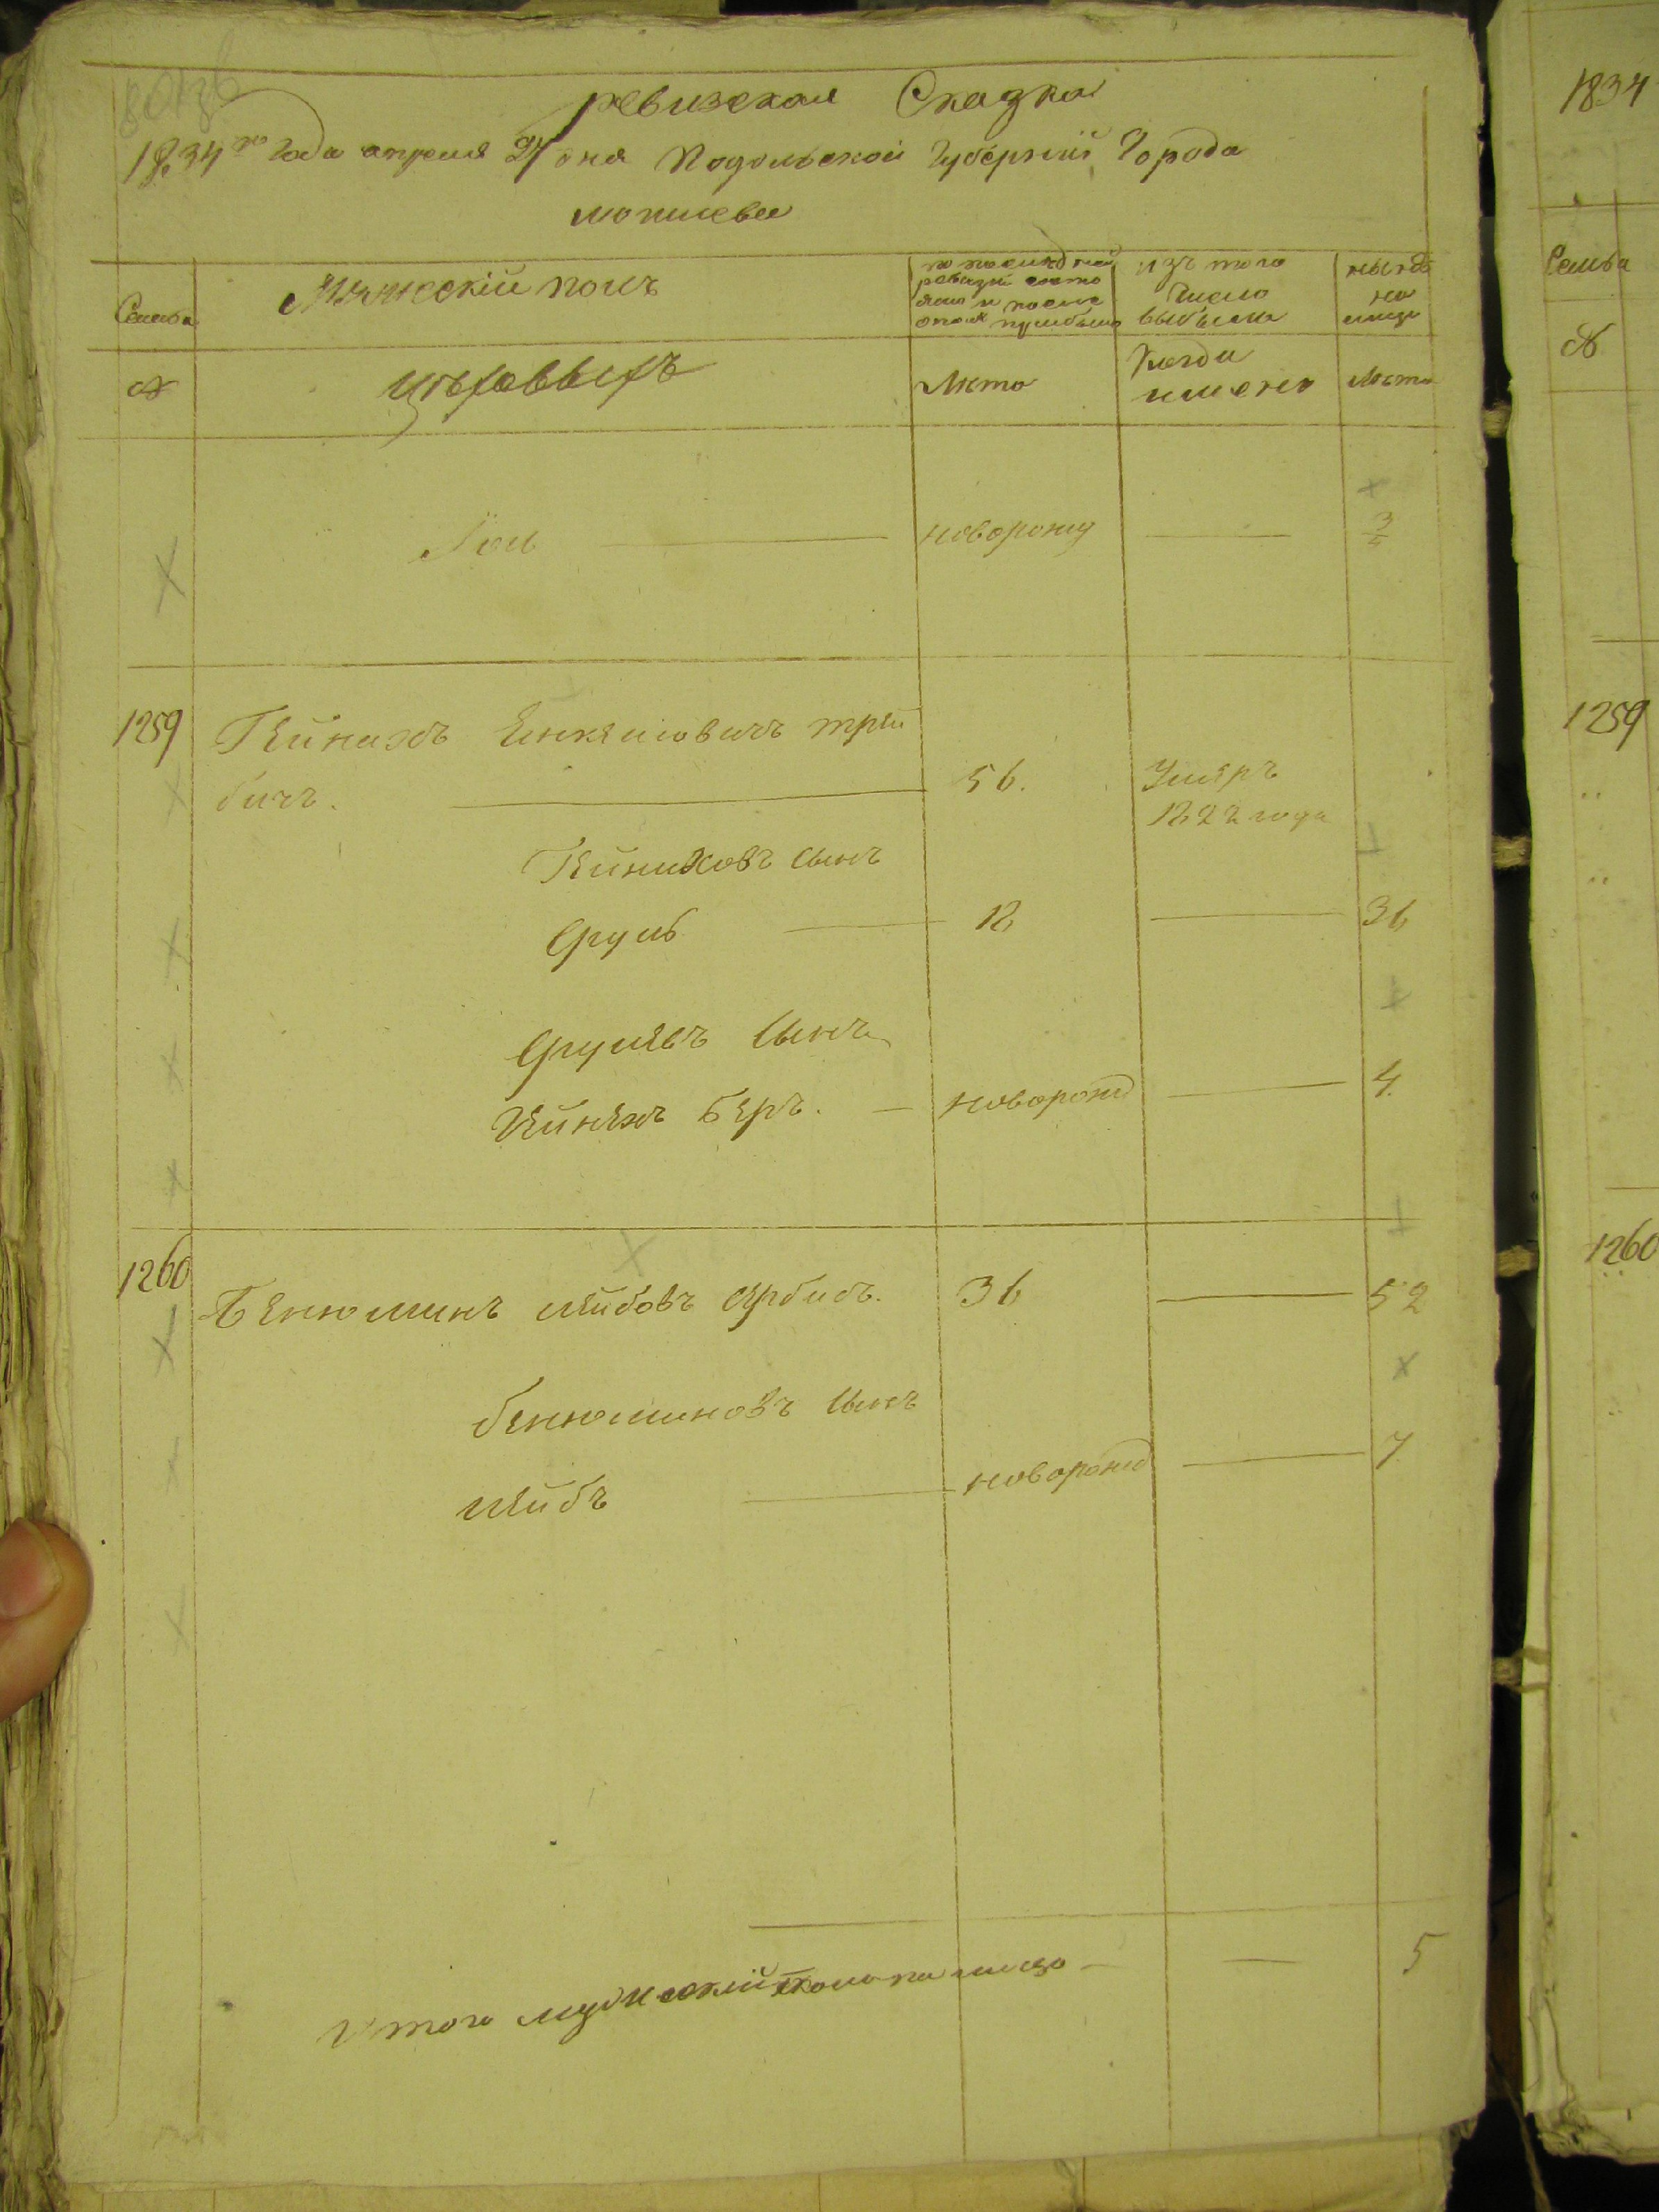 ревизская Сказка
1834го года апреля 27 дня Подольской Губернiи Города
могилева
Семьи
Мужескiй полъ
по последней
ревизiи состо
яло и после
оной прибыло
изъ того
число
выбыли
ныне
на
лицо
№
Лета
Когда
именно
Лета
новорожд
3/4
1259
Янкелиовичъ трей
бичъ.
56.
Умеръ
1822 года
сынъ
Сруль
18
36
Срулевъ сынъ
Беръ.
новорожд
4.
1260
Бенюминъ Лейбовъ
36
52
бенюминовъ сынъ
Лейбъ
новорожд
7
Итого мужескаго пола на лицо
5
1834
Семьи
№
1259
1260